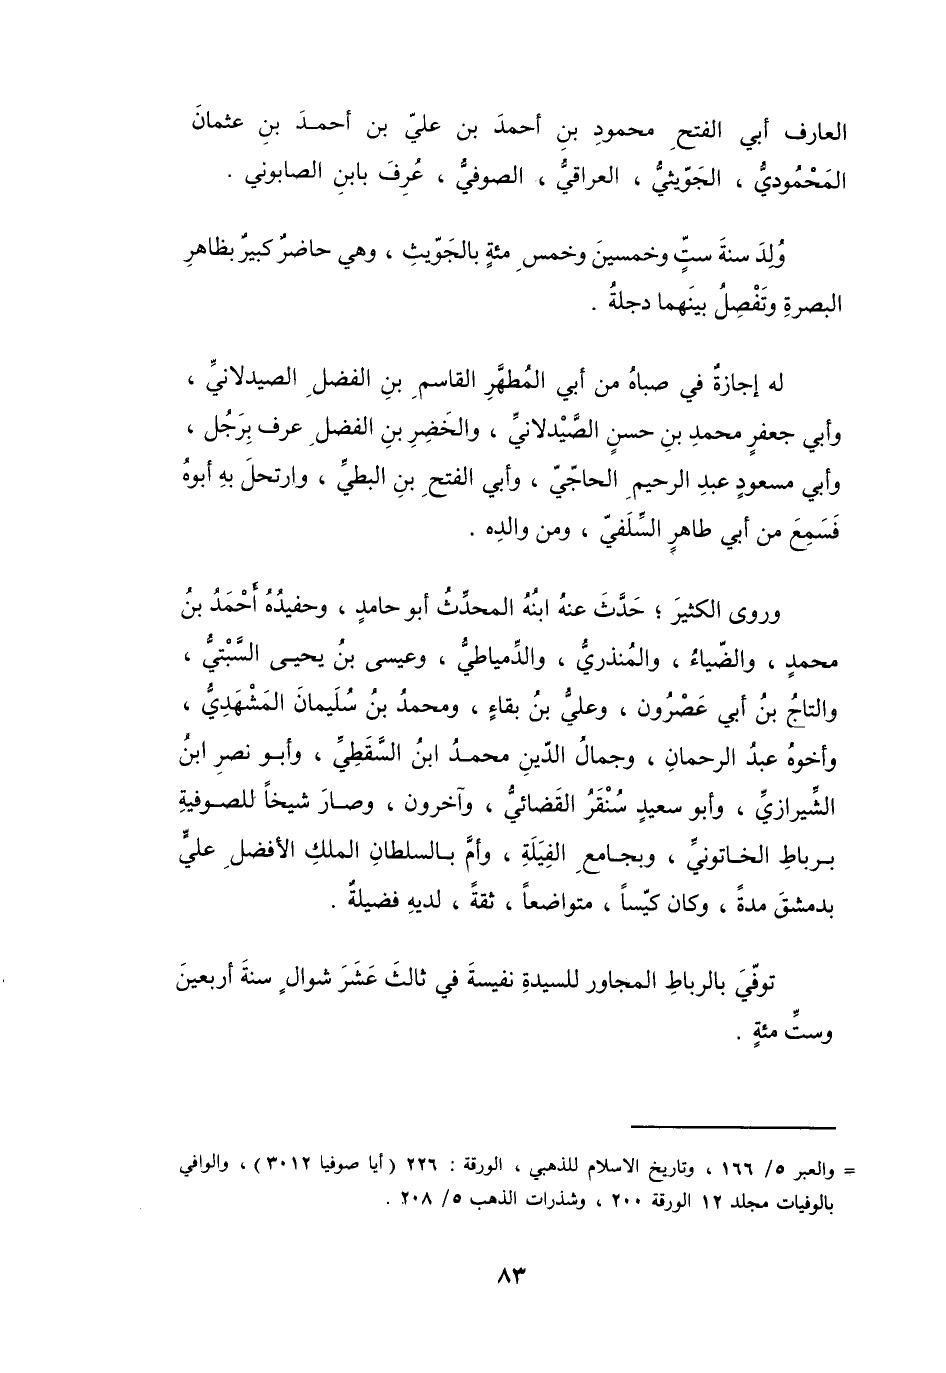 العارف أبي الفتحِ محمودِ بنِ أحمدَ بن عليّ بن أحمدَ بنِ عثمانَ
المَحْمُوديُّ ، الجَوّيثيُّ ، العراقيُّ ، الصوفيُّ ، عُرِفَ بابنِ الصابوني .
وُلِدَ سنةَ ستٍّ وخمسينَ وخمسِ مئةٍ بالجَوّيثِ ، وهي حاضرٌ كبيرٌ بظاهرِ
البصرةِ وتَفْصِلُ بينَهما دجلةُ .
له إجازةٌ في صباهُ من أبي المُطهَّرِ القاسمِ بنِ الفضلِ الصيدلانيِّ ،
وأبي جعفرٍ محمدِ بنِ حسنٍ الصَّيْدلانيِّ ، والخَضِرِ بنِ الفضلِ عرف بِرَجُل ،
وأبي مسعودٍ عبدِ الرحيمِ الحاجّيّ ، وأبي الفتحِ بنِ البطيِّ ، وارتحلَ بهِ أبوهُ
فَسَمِعَ من أبي طاهرٍ السِّلَفيّ ، ومن والدِه .
وروى الكثيرَ ؛ حَدَّثَ عنهُ ابنُهُ المحدِّثُ أبو حامدٍ ، وحفيدُهُ أَحْمَدُ بنُ
محمدٍ ، والضّياءُ ، والمُنذريُّ ، والدِّمياطيُّ ، وعيسى بنُ يحيى السَّبْتيُّ ،
والتاجُ بنُ أبي عَصْرُون ، وعليُّ بنُ بقاءٍ ، ومحمدُ بنُ سُلَيمانَ المَشْهَدِيُّ ،
وأخوهُ عبدُ الرحمانِ ، وجمالُ الدّينِ محمدُ ابنُ السَّقَطِيِّ ، وأبو نصرِ ابنُ
الشِّيرازيِّ ، وأبو سعيدٍ سُنْقَرُ القَضائيُّ ، وآخرون ، وصارَ شيخاً للصوفيةِ
برباطِ الخاتونيِّ ، وبجامعِ الفِيَلَةِ ، وأمَّ بالسلطانِ الملكِ الأفضلِ عليٍّ
بدمشقَ مدةً ، وكان كيّساً ، متواضعاً ، ثقةً ، لديهِ فضيلةٌ .
توفّيَ بالرباطِ المجاور للسيدةِ نفيسةَ في ثالثَ عَشَرَ شوالٍ سنةَ أربعينَ
وستِّ مئةٍ .
= والعبر ٥/ ١٦٦ ، وتاريخ الاسلام للذهبي ، الورقة : ٢٢٦ ( أيا صوفيا ٣٠١٢ ) ، والوافي
بالوفيات مجلد ١٢ الورقة ٢٠٠ ، وشذرات الذهب ٥/ ٢٠٨ .
٨٣